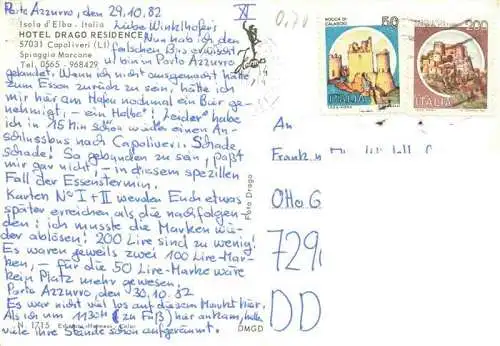 Porto Azzurro, den 29.10.82
XI
Isola d'Elba - Italia
Liebe Winkelhöfer,
HOTEL DRAGO RESIDENCE
Nun hab ich den
57031 Capoliveri (LI)
falschen Bus erwischt
Spiaggia Morcone
u. bin in Porto Azzurro
Tel. 0565 - 968429
gelandet. Wenn ich nicht ausgemacht hätte,
zum Essen zurück zu sein, hätte ich
mir hier am Hafen nochmal ein Bier ge-
nehmigt, - ein Halbe! Leider habe
ich in 15 Min schon wieder einen An-
schlussbus nach Capoliveri. Schade
Schade! So gebunden zu sein, paßt
mir gar nicht, - in diesem speziellen
Fall der Essenstermin.
Karten No I + II werden Euch etwas
später erreichen als die nachfolgen-
den: ich musste die Marken wie-
der ablösen! 200 Lire sind zu wenig!
Es waren jeweils zwei 100 Lire-Mar-
ken, - für die 50 Lire-Marke wäre
kein Platz mehr gewesen.
Porto Azzurro, den 30.10.82
Es war nicht viel los auf diesem Markt hier.
Als ich um 1130H (zu Fuß) hier ankam, hatten
viele ihre Stände schon aufgeräumt.
N. 1715
DMGD
Foto Drago
0,70
ROCCA DI CALASCIO
50
ITALIA
200
ITALIA
An
Otto G
729
DD